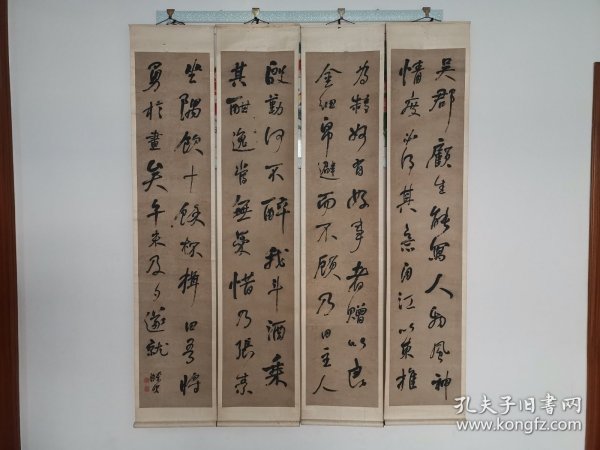 吳郡顧生能寫人物風神
情度必得其意自江以東推
為精妙有好事者贈以良
金細帛避而不顧乃曰主人
殷勤何不醉我斗酒乘
其酣逸當無愛惜乃張素
坐隅飲十餘杯揖曰吾將
勇於畫矣午未及夕遂就
孔夫子旧书网
www.kongfz.com